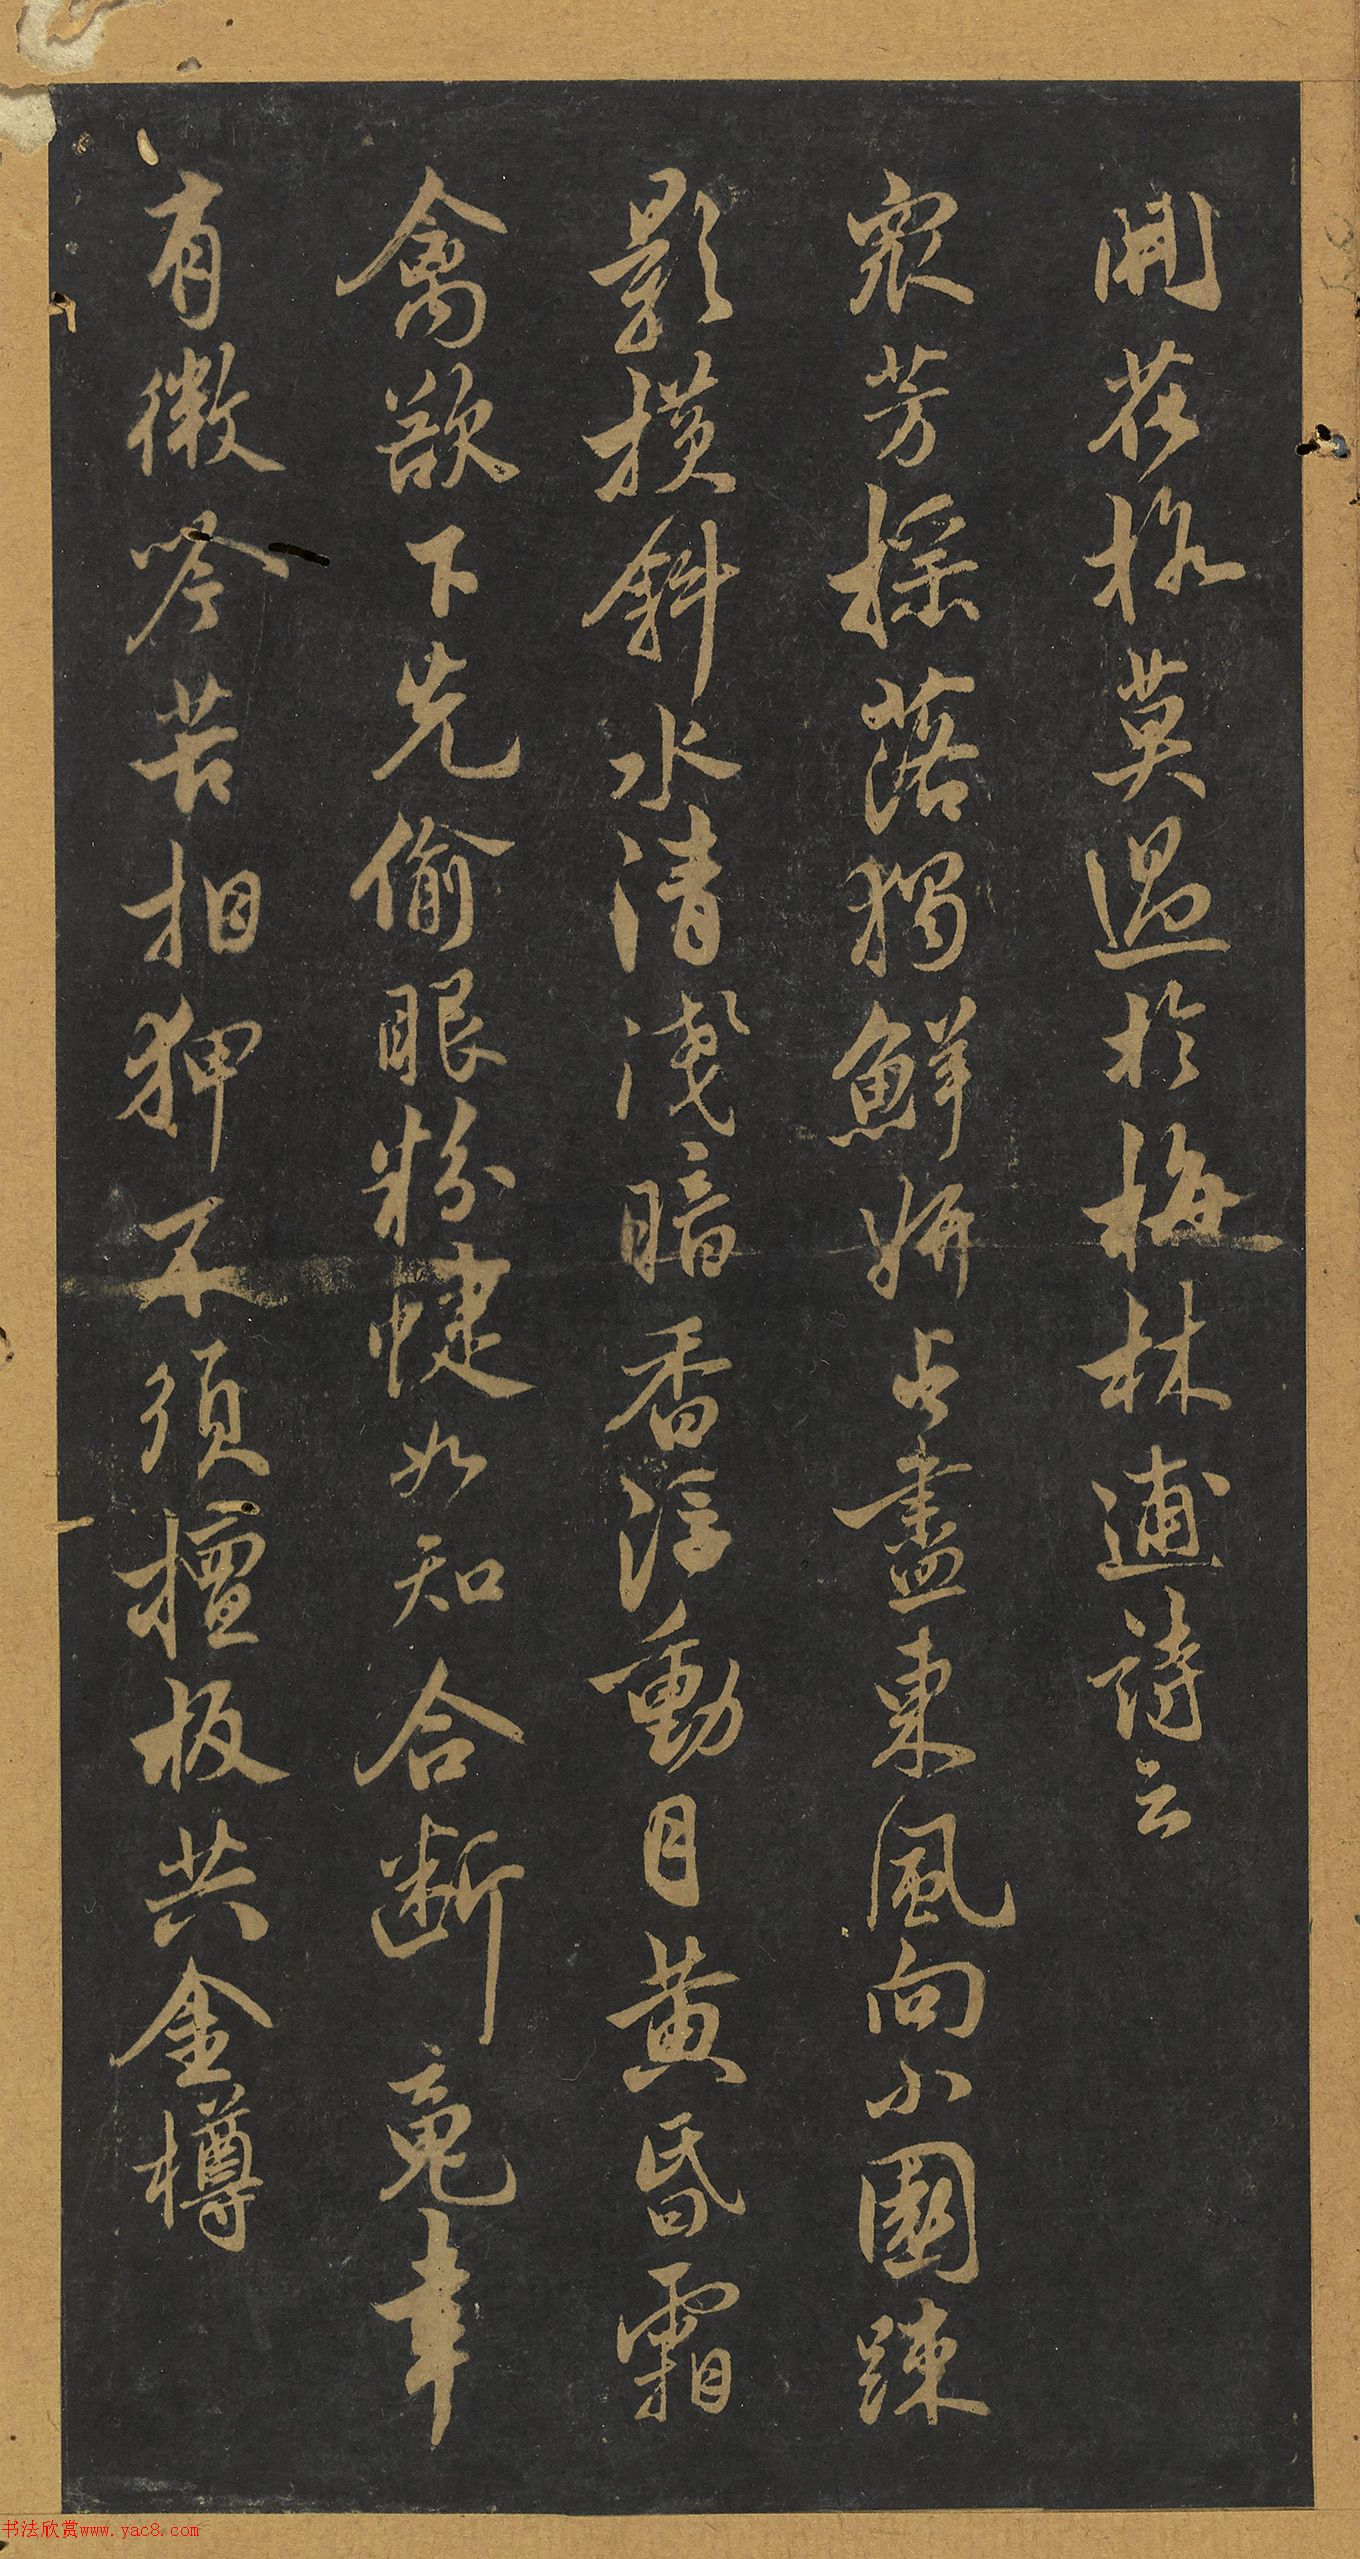 開花莫過於梅林逋詩云
衆芳搖落獨鮮妍占盡東風向小園疎
影橫斜水清淺暗香浮動目黃昏霜
禽欲下先偷眼粉蜨如知合斷䰟幸
有微吟苦相狎不須檀板共金樽
书法欣赏www.yac8.com